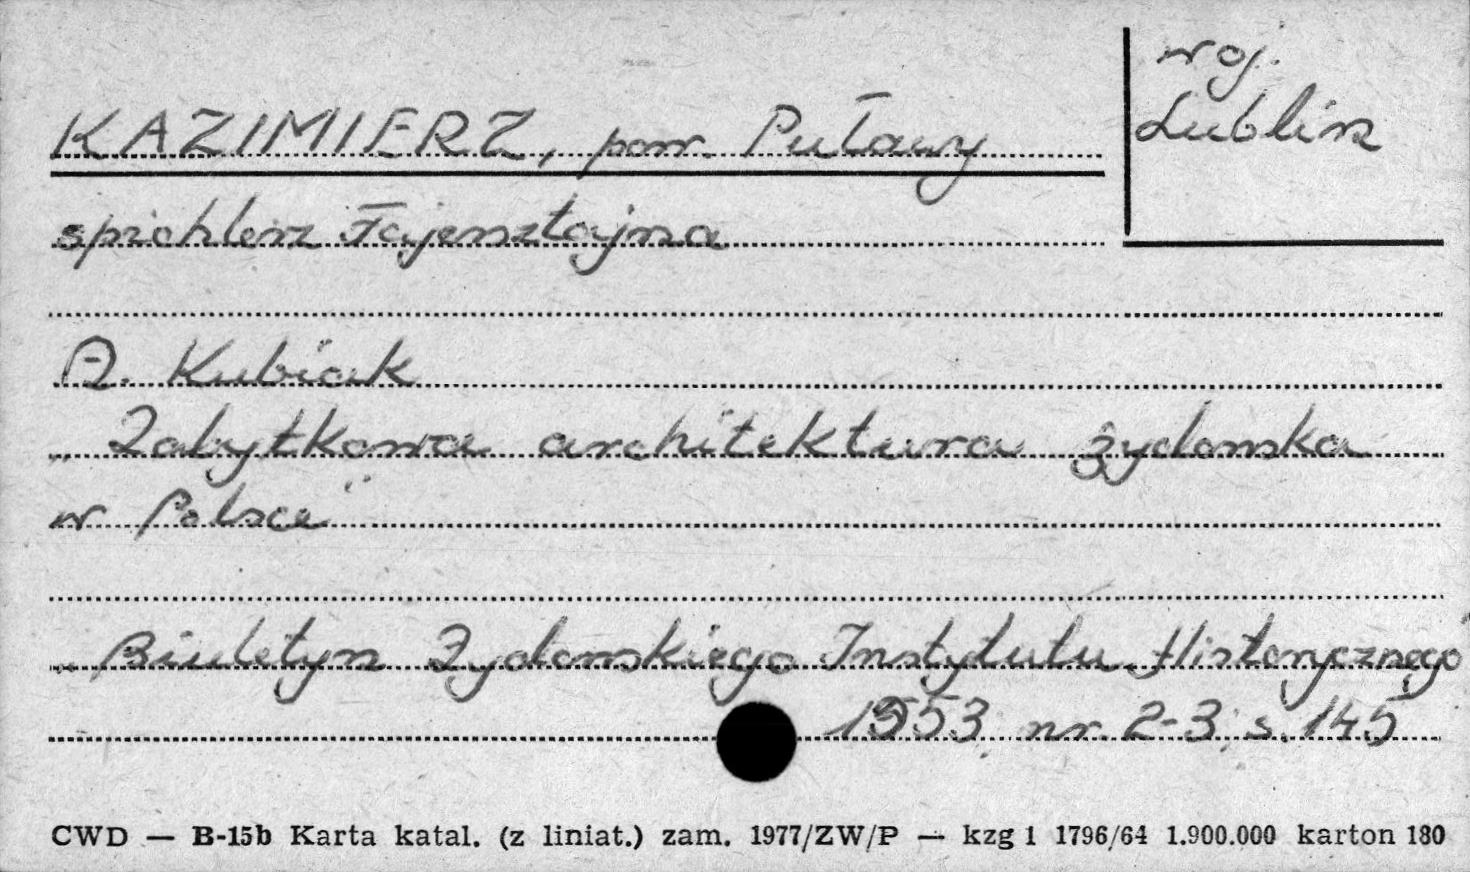 woj.
Lublin
KAZIMIERZ, pow. Puławy
spichlerz Fajersztajna
A. Kubiak
„Zabytkowa architektura żydowska
w Polsce"
„Biuletyn Żydowskiego Instytutu Historycznego"
1953 nr 2-3, s. 145
CWD — B-15b Karta katal. (z liniat.) zam. 1977/ZW/P — kzg 1 1796/64 1.900.000 karton 180